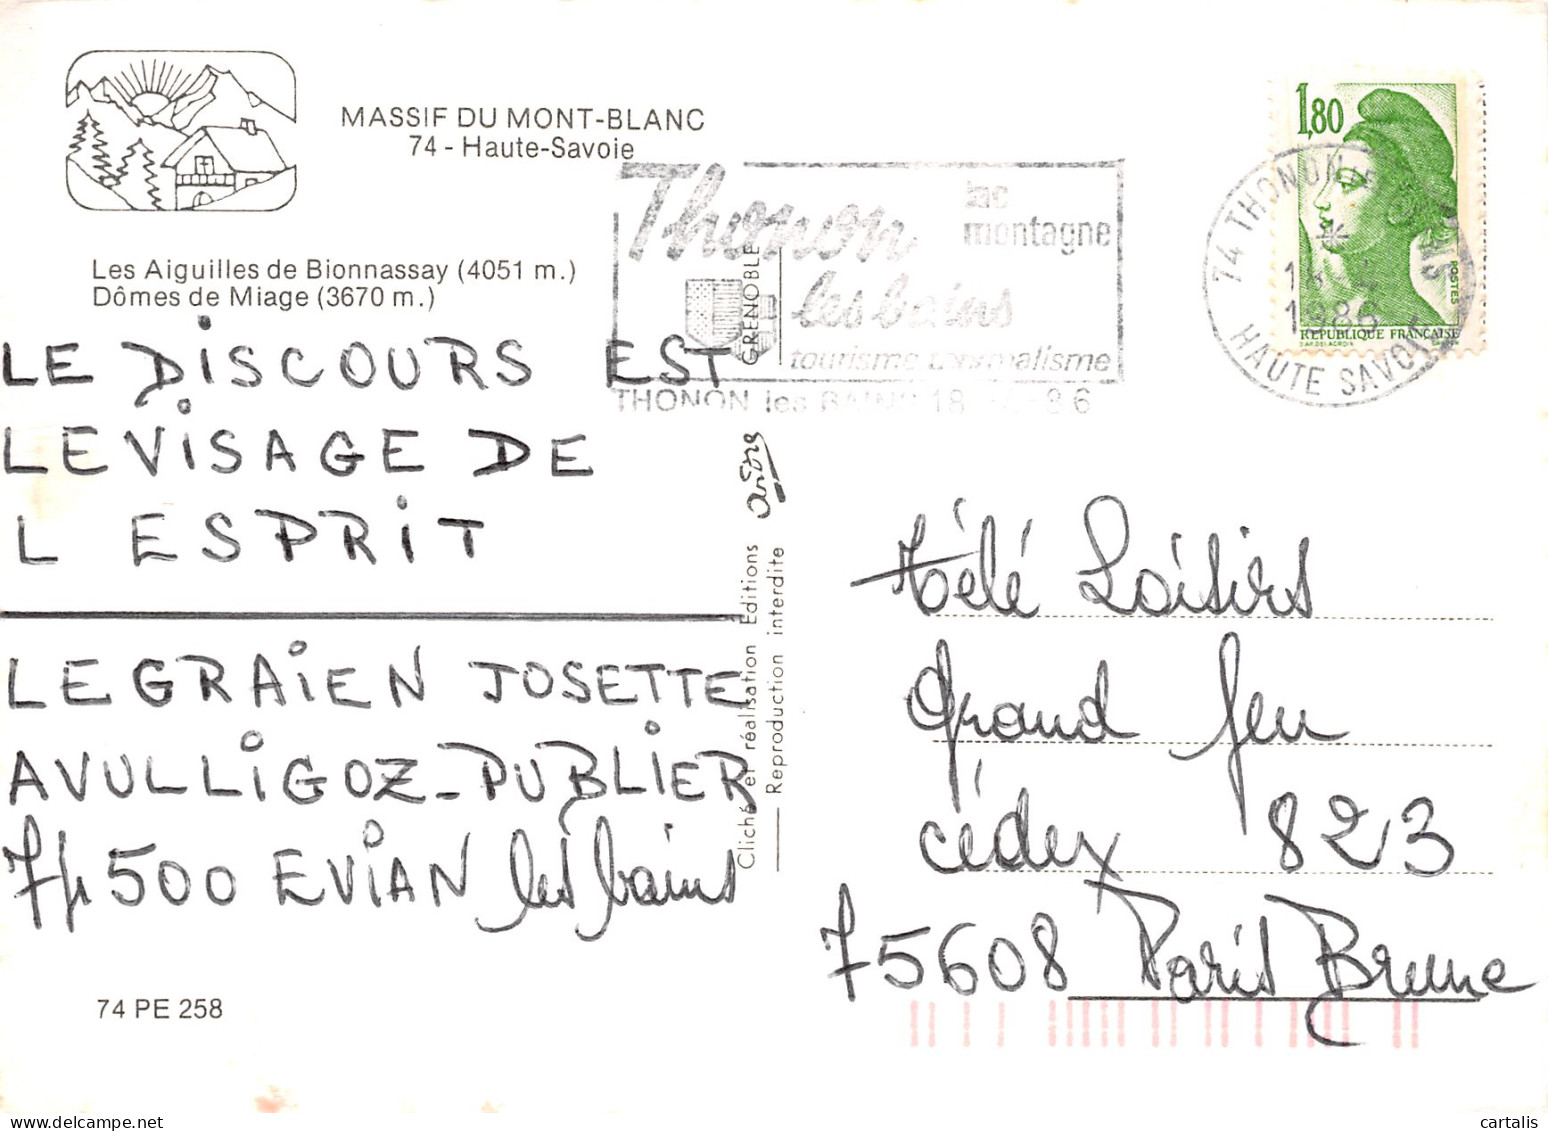 MASSIF DU MONT-BLANC
74 - Haute-Savoie
Les Aiguilles de Bionnassay (4051 m.)
Dômes de Miage (3670 m.)
LE DISCOURS EST
LE VISAGE DE
L ESPRIT
LEGRAIEN JOSETTE
AVULLIGOZ_PUBLIER
74500 EVIAN les bains
74 PE 258
Thonon
les bains
lac
montagne
tourisme thermalisme
THONON les BAINS 18 86
GRENOBLE
Cliché et réalisation Editions
Reproduction interdite
1,80
POSTES
REPUBLIQUE FRANÇAISE
74 THONON
1986
HAUTE SAVOIE
télé Loisirs
grand Jeu
cédex 823
75608 Paris Brune
cartalis